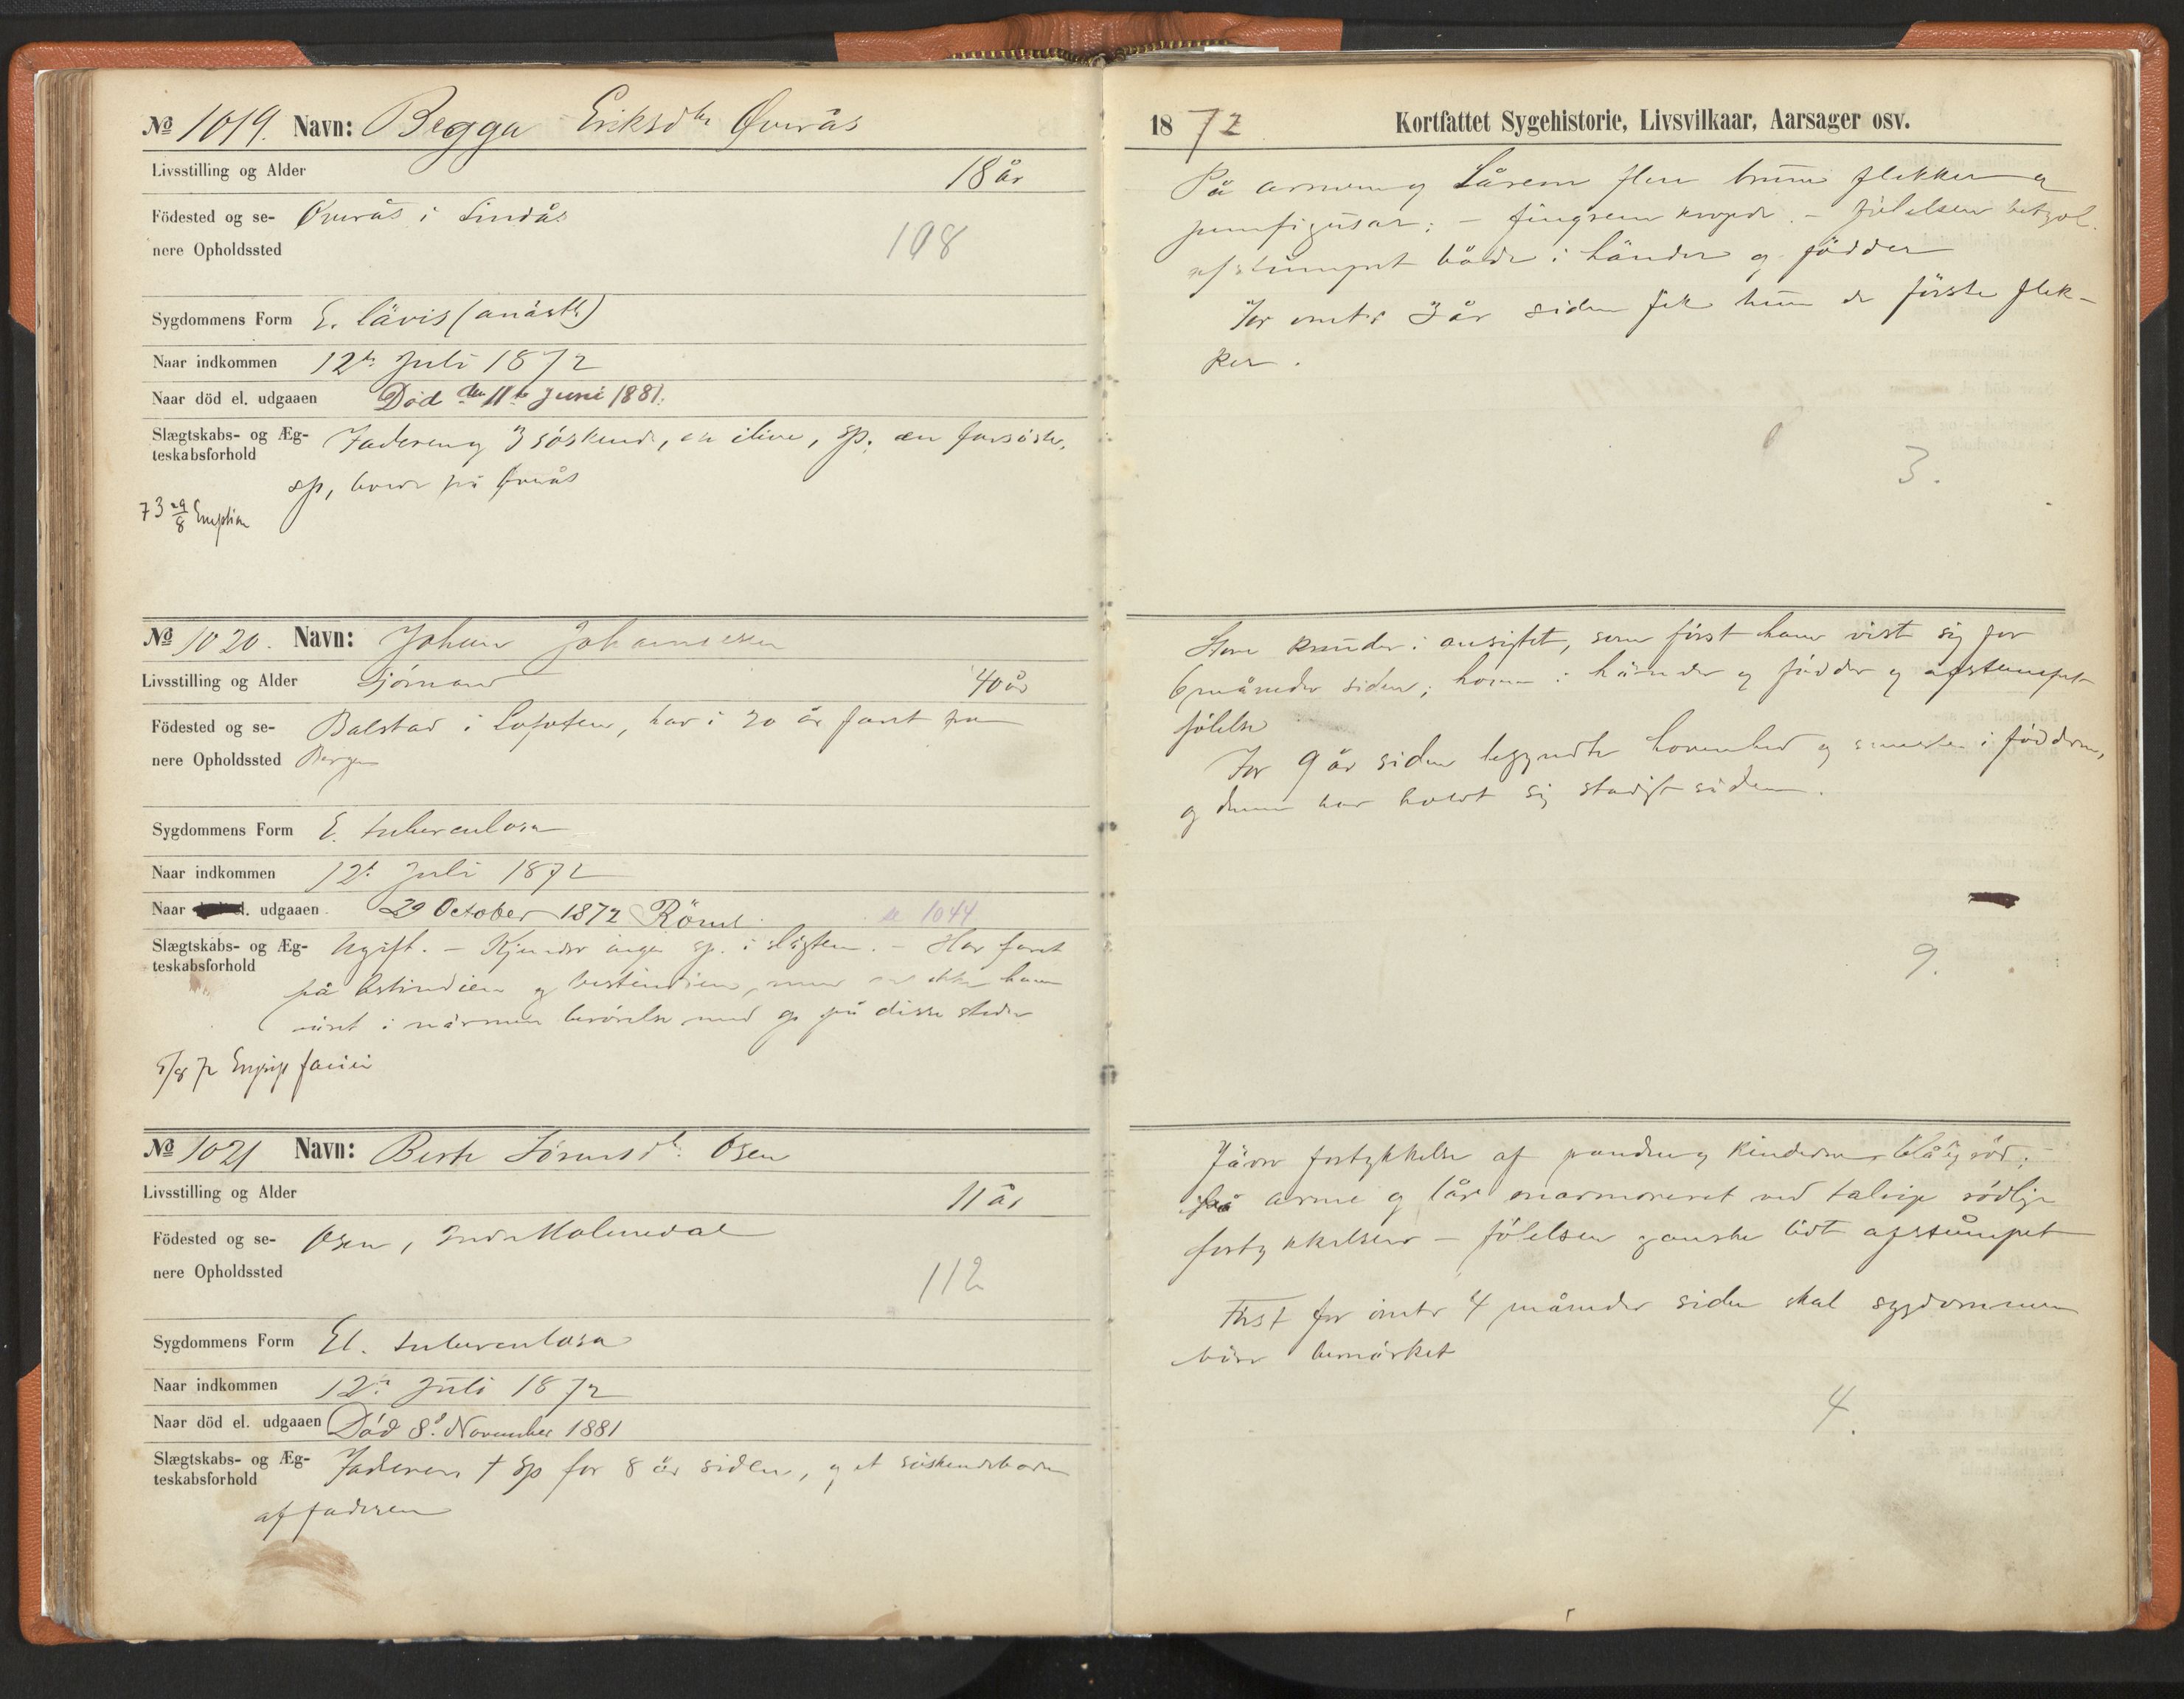 No 1019. Navn: Begga Eriksdtr Överås
Livsstilling og Alder 18 år
Födested og se- Överås i Lindås
nere Opholdssted 108
Sygdommens Form E. lävis (anästh)
Naar indkommen 12te Juli 1872
Naar död el. udgaaen Död den 11te Juni 1881.
Slægtskabs- og Æg- Faderen og 3 söskende, en ilive, sp; en farsöster,
teskabsforhold
sp, boede på Överås
73 29/8 Eruption
No 1020. Navn: Johan Johannesen
Livsstilling og Alder Sjömand 40 år
Födested og se- Balstad i Lofoten, har i 20 år faret fra
nere Opholdssted Bergen
Sygdommens Form E. tuberculosa
Naar indkommen 12t Juli 1872
Naar udgaaen 29 October 1872 Römt se 1044
Slægtskabs- og Æg- Ugift. – Kjender ingen sp. i slägten. – Har faret
teskabsforhold
på Ostindien og Vestindien, men ikke han
väret i närmere berörelse med sp på disse steder
5/8 72 faciei
No 1021 Navn: Berte Sörensdtr Osen
Livsstilling og Alder 11 år
Födested og se- Osen, Indre Holmedal
nere Opholdssted 112
Sygdommens Form El. tuberculosa
Naar indkommen 12te Juli 1872
Naar död el. udgaaen Död 8de November 1881
Slægtskabs- og Æg- Faderen † sp for 8 år siden, og et söskendebarn
teskabsforhold
af faderen
1872 Kortfattet Sygehistorie, Livsvilkaar, Aarsager osv.
På armene og Lårene flere brune flekker og
pemfigusar; – fingrene krogede. – fölelsen betydel.
afstumpet både i händer og födder
For omtr 3 år siden fik hun de förste flek-
ker.
3.
Store knuder i ansigtet, som först have vist sig for
6 måneder siden; hovne i händer og födder og afstumpet
fölelse
For 9 år siden begyndte hovenhed og smerter i födderne,
og denne har holdt sig stadigt siden.
9.
Jävn fortykkelse af panden og kinderne, blålig röd;
på arme og lår marmoreret ved talrige rödlige
fortykkelser – fölelsen ganske lidt afstumpet
Först for omtr 4 måneder siden skal sygdommen
väre bemärket
4.